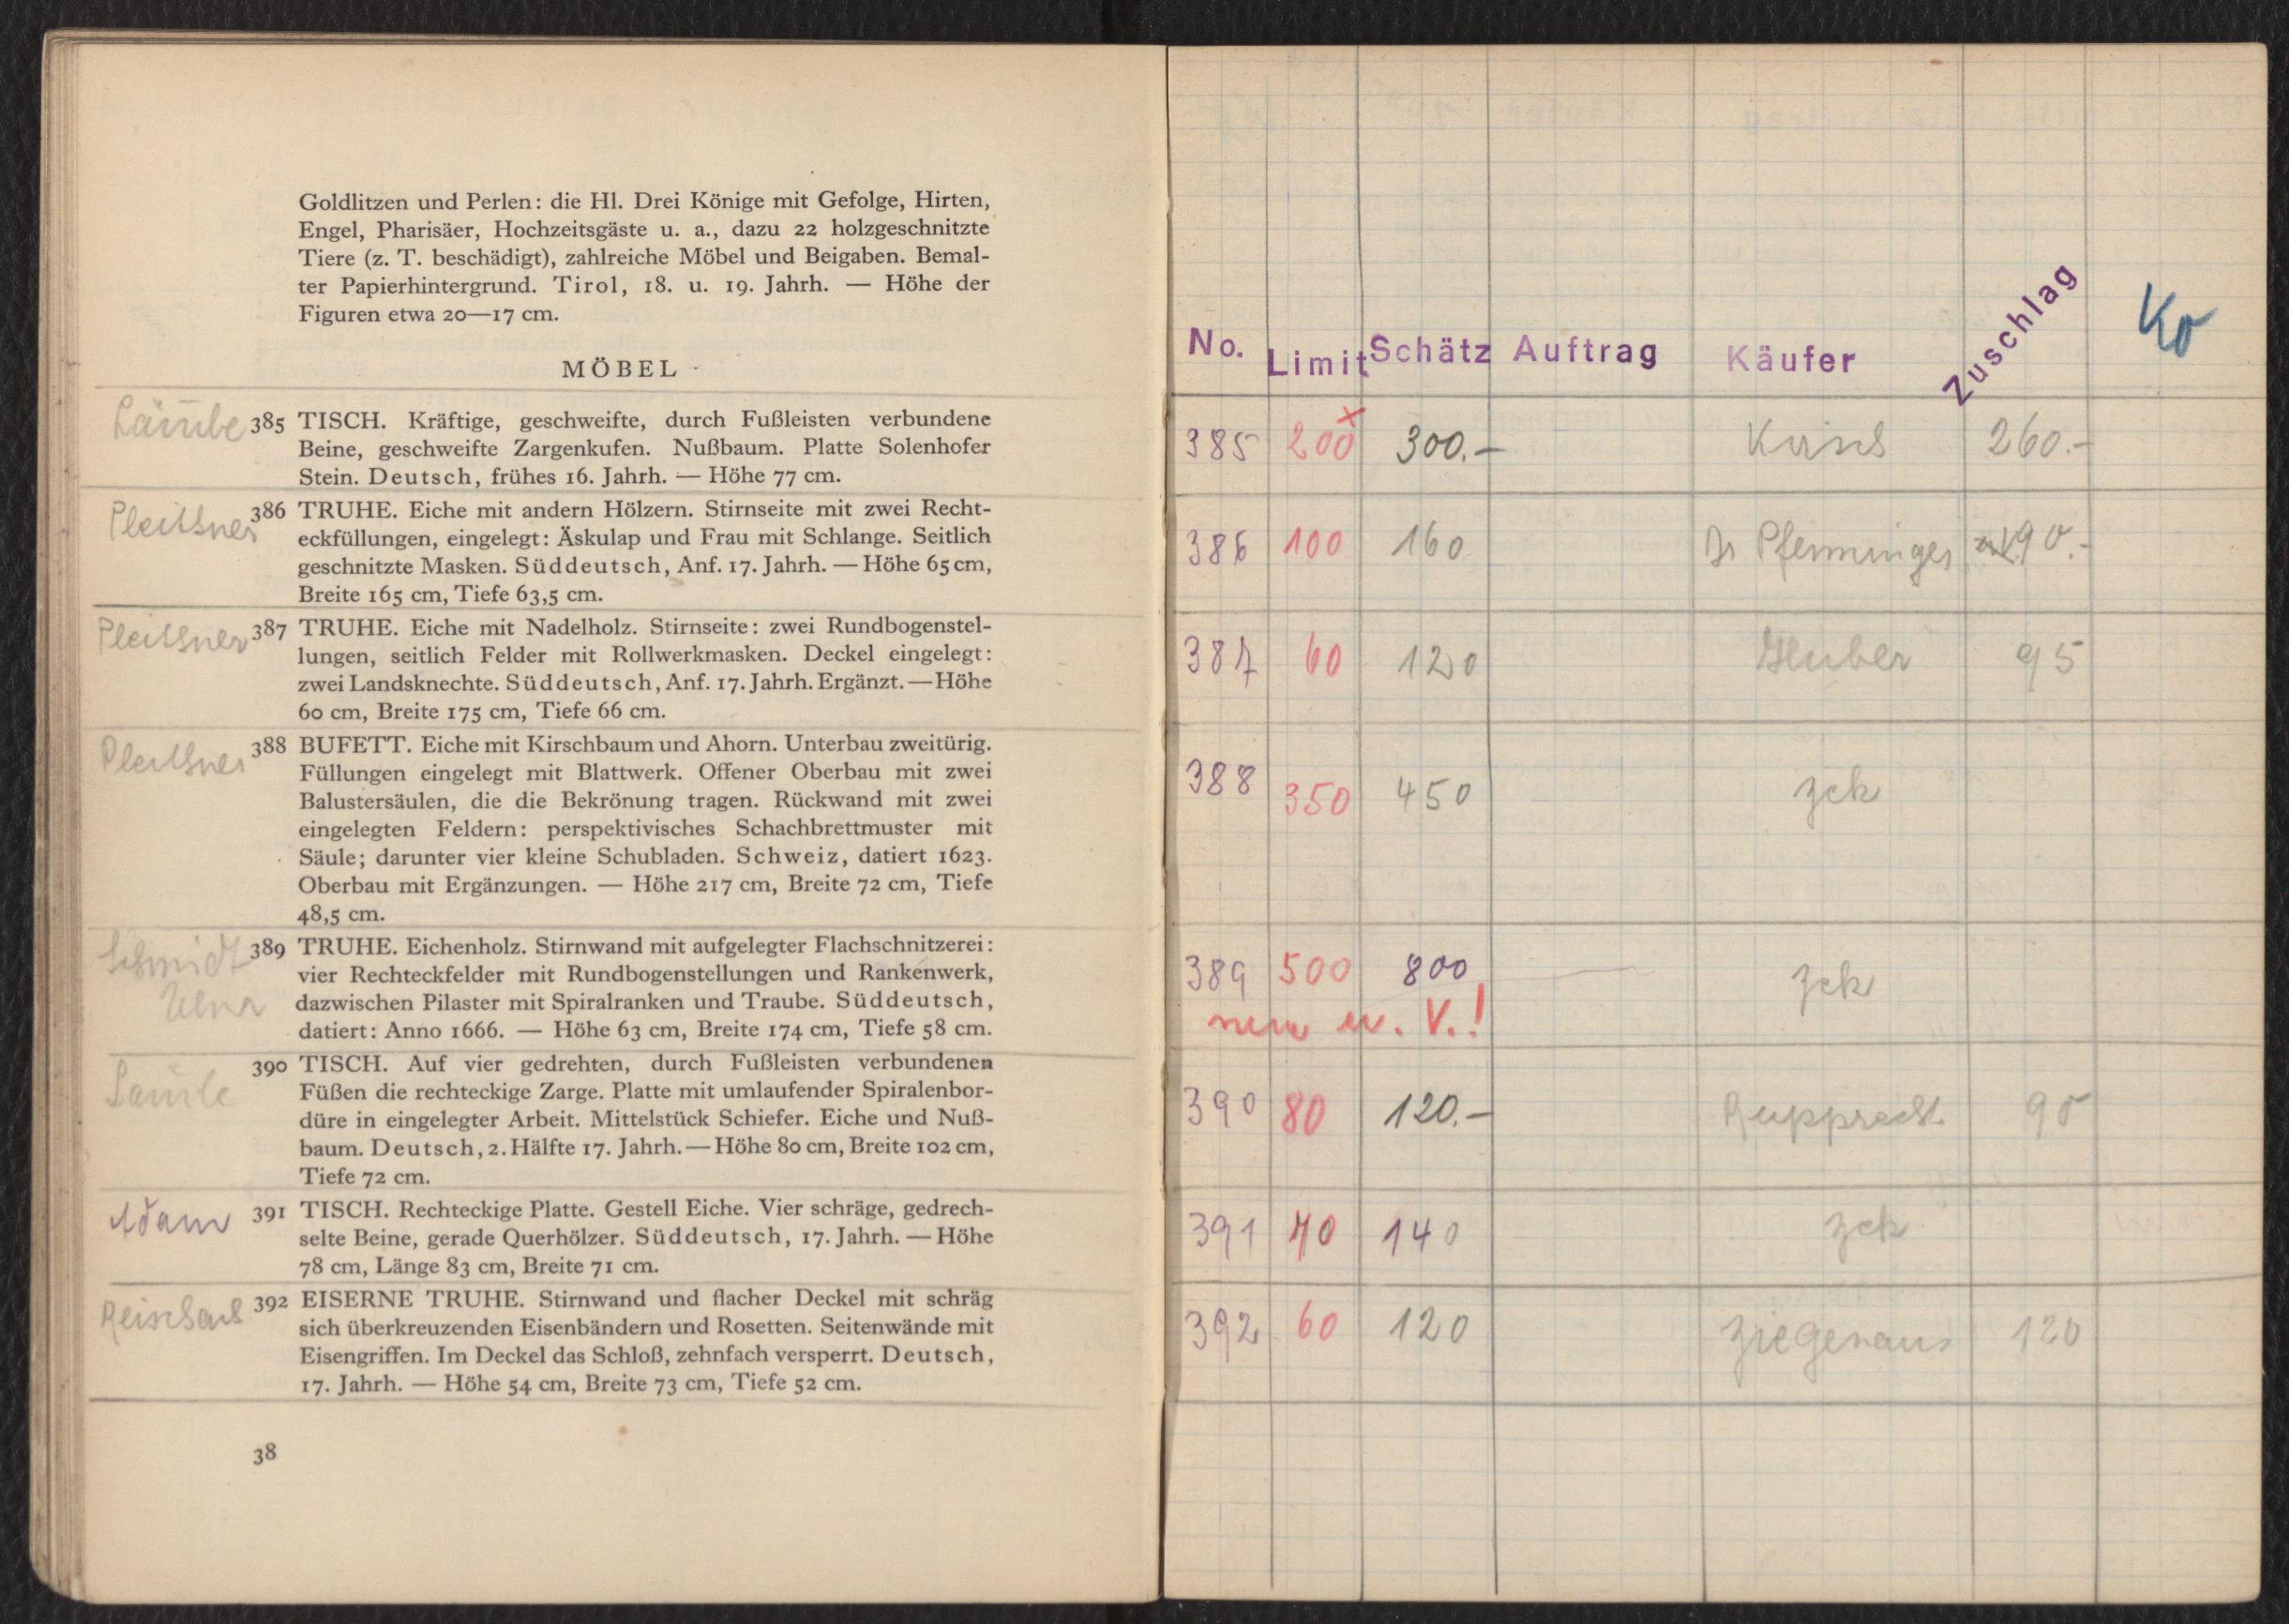 Goldlitzen und Perlen: die Hl. Drei Könige mit Gefolge, Hirten,
Engel, Pharisäer, Hochzeitsgäste u. a., dazu 22 holzgeschnitzte
Tiere (z. T. beschädigt), zahlreiche Möbel und Beigaben. Bemal-
ter Papierhintergrund. Tirol, 18. u. 19. Jahrh. — Höhe der
Figuren etwa 20—17 cm.
MÖBEL
385 TISCH. Kräftige, geschweifte, durch Fußleisten verbundene
Beine, geschweifte Zargenkufen. Nußbaum. Platte Solenhofer
Stein. Deutsch, frühes 16. Jahrh. — Höhe 77 cm.
Pleithner 386 TRUHE. Eiche mit andern Hölzern. Stirnseite mit zwei Recht-
eckfüllungen, eingelegt: Äskulap und Frau mit Schlange. Seitlich
geschnitzte Masken. Süddeutsch, Anf. 17. Jahrh. — Höhe 65 cm,
Breite 165 cm, Tiefe 63,5 cm.
Pleithner 387 TRUHE. Eiche mit Nadelholz. Stirnseite: zwei Rundbogenstel-
lungen, seitlich Felder mit Rollwerkmasken. Deckel eingelegt:
zwei Landsknechte. Süddeutsch, Anf. 17. Jahrh. Ergänzt. — Höhe
60 cm, Breite 175 cm, Tiefe 66 cm.
Pleithner 388 BUFETT. Eiche mit Kirschbaum und Ahorn. Unterbau zweitürig.
Füllungen eingelegt mit Blattwerk. Offener Oberbau mit zwei
Balustersäulen, die die Bekrönung tragen. Rückwand mit zwei
eingelegten Feldern: perspektivisches Schachbrettmuster mit
Säule; darunter vier kleine Schubladen. Schweiz, datiert 1623.
Oberbau mit Ergänzungen. — Höhe 217 cm, Breite 72 cm, Tiefe
48,5 cm.
Schmidt 389 TRUHE. Eichenholz. Stirnwand mit aufgelegter Flachschnitzerei:
vier Rechteckfelder mit Rundbogenstellungen und Rankenwerk,
dazwischen Pilaster mit Spiralranken und Traube. Süddeutsch,
datiert: Anno 1666. — Höhe 63 cm, Breite 174 cm, Tiefe 58 cm.
390 TISCH. Auf vier gedrehten, durch Fußleisten verbundenen
Füßen die rechteckige Zarge. Platte mit umlaufender Spiralenbor-
düre in eingelegter Arbeit. Mittelstück Schiefer. Eiche und Nuß-
baum. Deutsch, 2. Hälfte 17. Jahrh. — Höhe 80 cm, Breite 102 cm,
Tiefe 72 cm.
Adam 391 TISCH. Rechteckige Platte. Gestell Eiche. Vier schräge, gedrech-
selte Beine, gerade Querhölzer. Süddeutsch, 17. Jahrh. — Höhe
78 cm, Länge 83 cm, Breite 71 cm.
392 EISERNE TRUHE. Stirnwand und flacher Deckel mit schräg
sich überkreuzenden Eisenbändern und Rosetten. Seitenwände mit
Eisengriffen. Im Deckel das Schloß, zehnfach versperrt. Deutsch,
17. Jahrh. — Höhe 54 cm, Breite 73 cm, Tiefe 52 cm.
38
No. Limit Schätz Auftrag Käufer Zuschlag Ko
385 200 x 300.- 260.-
386 100 160 Dr Pfenninger 190.-
387 60 120 Huber 95
388 350 450 zck
389 500 800 — zck
V.!
390 80 120.- Rupprecht 95
391 70 140 zck
392 60 120 Ziegenaus 120